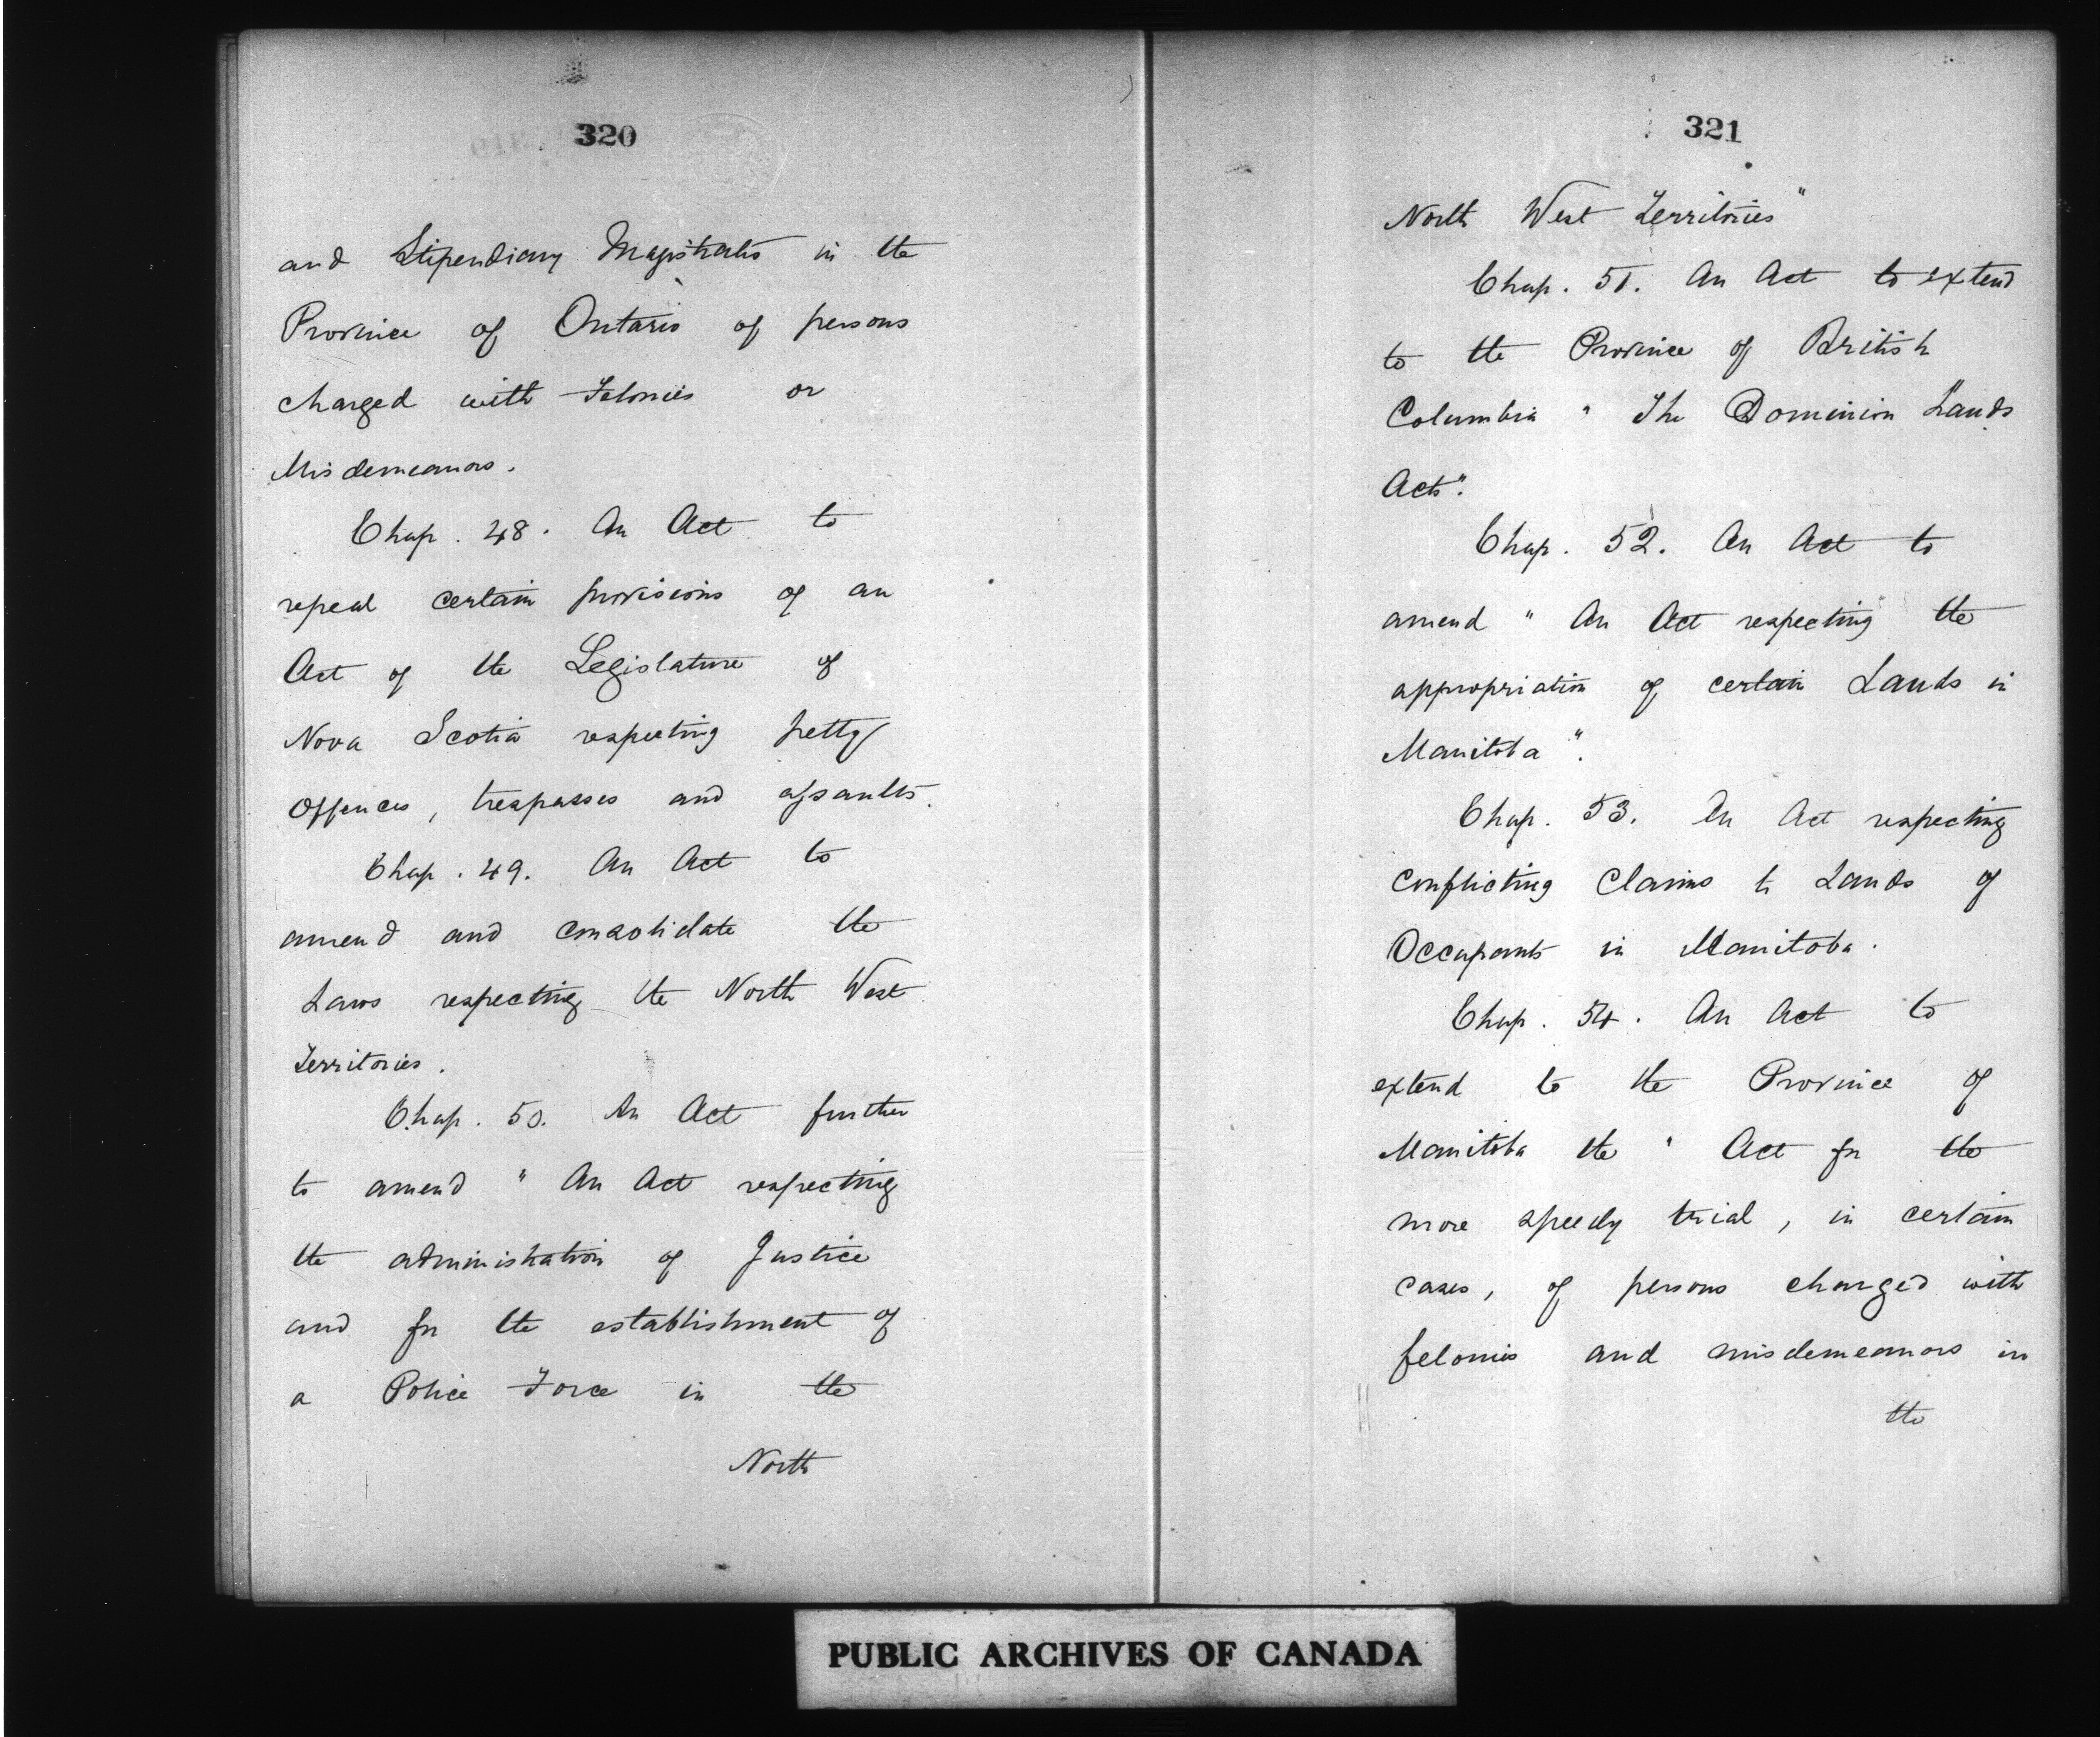 320
and Stipendiary Magistrates in the
Province of Ontario of persons
charged with Felonies or
Misdemeanors.
Chap. 48. An Act to
repeal certain provisions of an
Act of the Legislature of
Nova Scotia respecting petty
Offences, trespasses and assaults.
Chap. 49. An Act to
amend and consolidate the
Laws respecting the North West
Territories.
Chap. 50. An Act further
to amend "An Act respecting
the administration of Justice
and for the establishment of
a Police Force in the
North
321
North West Territories"
Chap. 51. An Act to extend
to the Province of British
Columbia "The Dominion Lands
Acts".
Chap. 52. An Act to
amend "An Act respecting the
appropriation of certain Lands in
Manitoba".
Chap. 53. An Act respecting
conflicting Claims to Lands of
Occupants in Manitoba.
Chap. 54. An Act to
extend to the Province of
Manitoba the "Act for the
more speedy trial, in certain
cases, of persons charged with
felonies and misdemeanors in
the
PUBLIC ARCHIVES OF CANADA